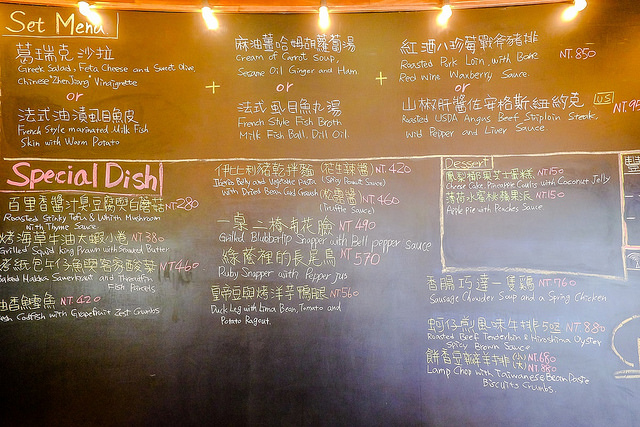 Set Menu
葛瑞克沙拉
Greek Salad, Feta Cheese and Sweet Olive,
Chinese "Zhenjiang" Vinaigrette
or
法式油漬虱目魚皮
French Style marinated Milk Fish
Skin with Warm Potato
+
麻油薑哈姆胡蘿蔔湯
Cream of Carrot Soup,
Sesame Oil Ginger and Ham
or
法式虱目魚丸湯
French Style Fish Broth
Milk Fish Ball, Dill Oil.
+
紅酒小珍莓戰斧豬排 NT.850
Roasted Pork Loin, with Bone
Red Wine Wexberry Sauce.
or
山椒肝醬佐安格斯紐約克 US NT.95
Roasted USDA Angus Beef Striploin Steak,
Wild Pepper and Liver Sauce
Special Dish
百里香醬汁臭豆腐與白蘑菇NT280
Roasted Stinky Tofu & Whith Mushroom
with Thyme Sauce
烤海草牛油大蝦小卷 NT380
Grilled Squid King Prawn with Seaweed Butter
烤紙包午仔魚與客家酸菜 NT460
Baked Hakka Sauerkraut and Threadfin
Fish Parcels
鱈魚 NT.420
Codfish with Grapefruit Zest Crumbs
伊比利豬乾拌麵(花生辣醬)NT.420
Iberico Belly and Vegetable Pasta (Spicy Peanut Sauce)
(松露醬)NT.460
(Truffle Sauce)
一桌二椅奇花臉 NT 490
Grilled Blubberlip Snapper with Bell pepper sauce
綠蔭裡的長尾鳥 NT 570
Ruby Snapper with Pepper jus
皇帝豆與烤洋芋鴨腿 NT560
Duck Leg with Lima Bean, Tomato and
Potato Ragout.
Dessert
鳳梨椰果芝士蛋糕 NT150
Cheese Cake Pineapple Coulis with Coconut Jelly
薄荷水蜜桃蘋果派 NT150
Apple Pie with Peaches Sauce
香腸巧達一隻雞 NT760
Sausage Chowder Soup and a Spring Chicken
蚵仔煎風味牛排 5oz NT.880
Roasted Beef Tenderloin & Hiroshima Oyster
Spicy Brown Sauce
餅香豆瓣羊排(小)NT.680
(大)NT.880
Lamp Chop with Taiwanese Bean Paste
Biscuits Crumbs.